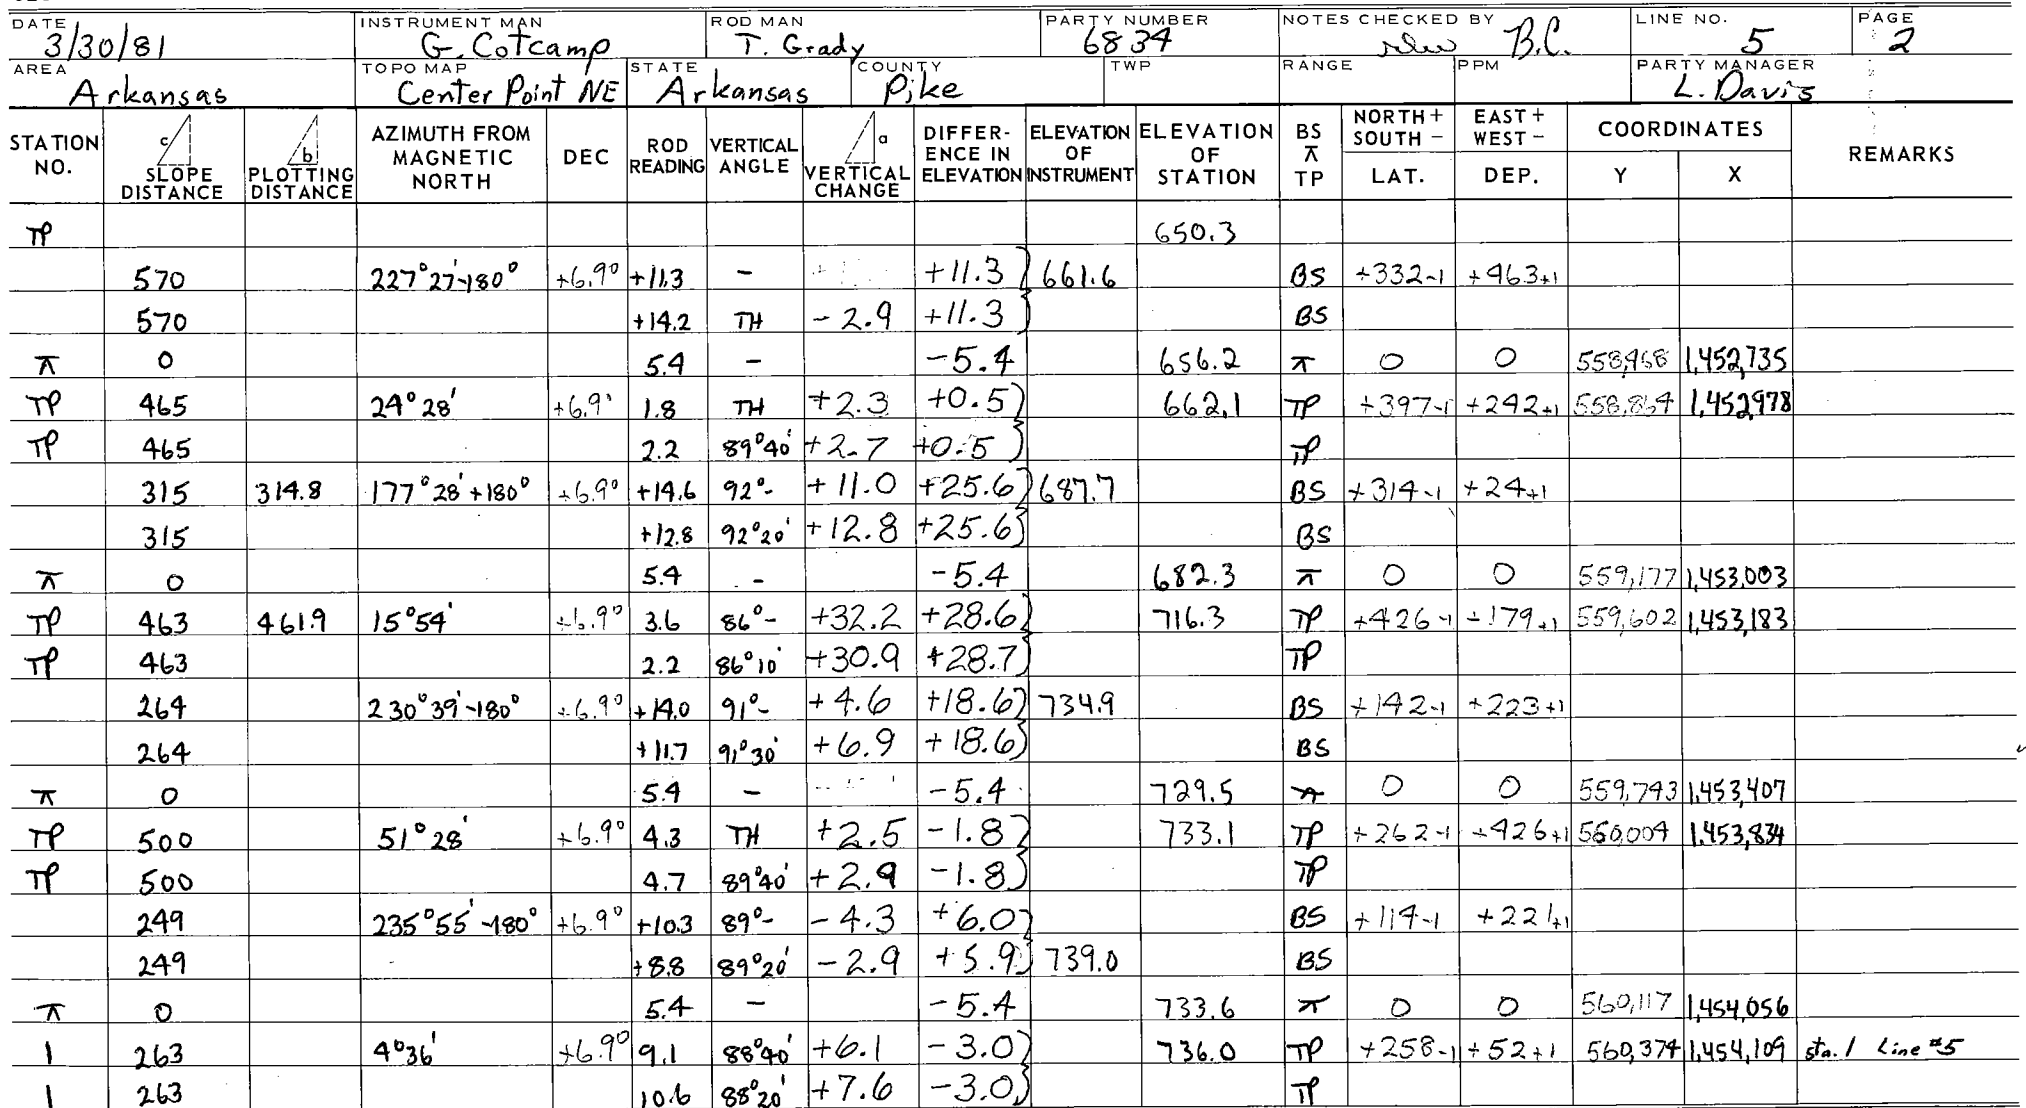 DATE INSTRUMENT MAN ROD MAN PARTY NUMBER NOTES CHECKED BY LINE NO. PAGE
3/30/81 G. Cotcamp T. Grady 6834 B.C. 5 2
AREA TOPO MAP STATE COUNTY TWP RANGE PPM PARTY MANAGER
Arkansas Center Point NE Arkansas Pike L. Davis
STATION NO. c SLOPE DISTANCE b PLOTTING DISTANCE AZIMUTH FROM MAGNETIC NORTH DEC ROD READING VERTICAL ANGLE a VERTICAL CHANGE DIFFERENCE IN ELEVATION ELEVATION OF INSTRUMENT ELEVATION OF STATION BS ⊼ TP NORTH + SOUTH - LAT. EAST + WEST - DEP. COORDINATES Y X REMARKS
TP 650.3
570 227°27'-180° +6.9° +11.3 - +11.3 661.6 BS +332-1 +463+1
570 +14.2 TH -2.9 +11.3 BS
⊼ 0 5.4 - -5.4 656.2 ⊼ 0 0 558,468 1,452,735
TP 465 24°28' +6.9° 1.8 TH +2.3 +0.5 662.1 TP +397-1 +242+1 558,864 1,452,978
TP 465 2.2 89°40' +2.7 +0.5 TP
315 314.8 177°28'+180° +6.9° +14.6 92°- +11.0 +25.6 687.7 BS +314-1 +24+1
315 +12.8 92°20' +12.8 +25.6 BS
⊼ 0 5.4 - -5.4 682.3 ⊼ 0 0 559,177 1,453,003
TP 463 461.9 15°54' +6.9° 3.6 86°- +32.2 +28.6 716.3 TP +426-1 +179+1 559,602 1,453,183
TP 463 2.2 86°10' +30.9 +28.7 TP
264 230°39'-180° +6.9° +14.0 91°- +4.6 +18.6 734.9 BS +142-1 +223+1
264 +11.7 91°30' +6.9 +18.6 BS
⊼ 0 5.4 - -5.4 729.5 ⊼ 0 0 559,743 1,453,407
TP 500 51°28' +6.9° 4.3 TH +2.5 -1.8 733.1 TP +262-1 +426+1 560,004 1,453,834
TP 500 4.7 89°40' +2.9 -1.8 TP
249 235°55'-180° +6.9° +10.3 89°- -4.3 +6.0 BS +114-1 +221+1
249 +8.8 89°20' -2.9 +5.9 739.0 BS
⊼ 0 5.4 - -5.4 733.6 ⊼ 0 0 560,117 1,454,056
1 263 4°36' +6.9° 9.1 88°40' +6.1 -3.0 736.0 TP +258-1 +52+1 560,374 1,454,109 sta. 1 Line #5
1 263 10.6 88°20' +7.6 -3.0 TP